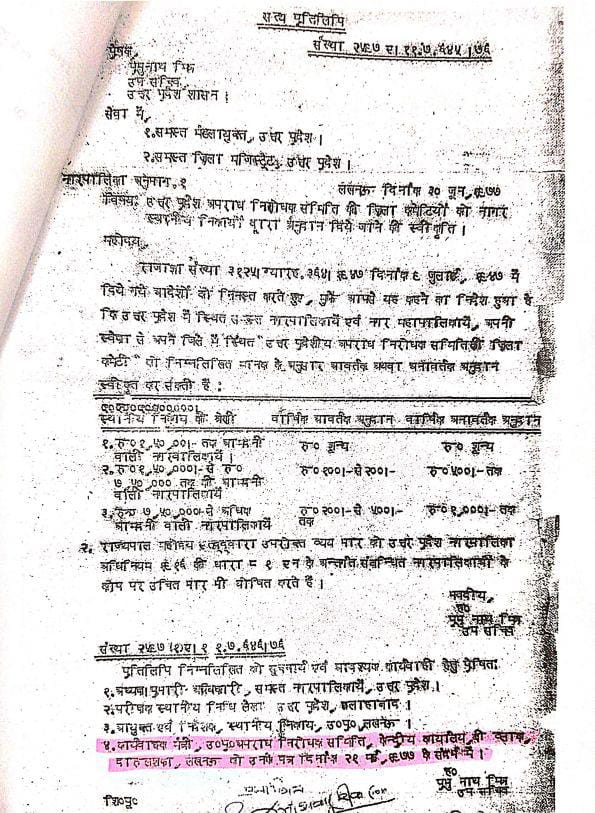 सत्य प्रतिलिपि
संख्या २५९७ ए। ११.७.६४५।७६
प्रेषक,
उप सचिव,
उत्तर प्रदेश शासन।
सेवा में,
१.समस्त मंडलायुक्त, उत्तर प्रदेश।
२.समस्त जिला मजिस्ट्रेट, उत्तर प्रदेश।
नगरपालिका अनुभाग.१
लखनऊ दिनांक ३० जून, १९७७
विषय: उत्तर प्रदेश अपराध निरोधक समिति की जिला कमेटियों को नागर
स्थानीय निकायों द्वारा अनुदान दिये जाने की स्वीकृति।
महोदय,
राजाज्ञा संख्या दिनांक ९ जुलाई, में
दिये गये आदेशों को निरस्त करते हुए, मुझे आपसे यह कहने का निदेश हुआ है
कि उत्तर प्रदेश में स्थित समस्त नगरपालिकायें एवं नगर महापालिकायें, अपनी
स्वेच्छा से अपने जिले में स्थित "उत्तर प्रदेशीय अपराध निरोधक समिति की जिला
कमेटी" को निम्नलिखित मानक के अनुसार आवर्तक अथवा अनावर्तक अनुदान
स्वीकृत कर सकती हैं :
स्थानीय निकाय की श्रेणी वार्षिक आवर्तक अनुदान वार्षिक अनावर्तक अनुदान
१.रु० १,५०,०००।- तक आमदनी रु० शून्य रु० शून्य
वाली नगरपालिकायें
२.रु० १,५०,०००।-से रु० रु० १००।-से २००।- रु० ५००।- तक
७,५०,००० तक की आमदनी
वाली नगरपालिकायें
३.रु० ७,५०,०००।-से अधिक रु० २००।- से ५००।- रु० १,०००।-तक
आमदनी वाली नगरपालिकायें तक
२. राज्यपाल महोदय उपरोक्त व्यय भार को उत्तर प्रदेश नगरपालिका
अधिनियम की धारा के अन्तर्गत संबन्धित नगरपालिकाओं के
कोष पर उचित भार भी घोषित करते हैं।
भवदीय,
ह०
उप सचिव
संख्या २५९७ (१)ए। ११.७.६४६।७६
प्रतिलिपि निम्नलिखित को सूचनार्थ एवं आवश्यक कार्यवाही हेतु प्रेषित:
१.अध्यक्ष।प्रभारी अधिकारी, समस्त नगरपालिकायें, उत्तर प्रदेश।
२.परीक्षक स्थानीय निधि लेखा उत्तर प्रदेश, इलाहाबाद।
३.आयुक्त एवं निदेशक, स्थानीय निकाय, उ०प्र०, लखनऊ।
४.कार्यवाहक मंत्री, उ०प्र०अपराध निरोधक समिति, केन्द्रीय कार्यालय, बी ब्लाक,
दारुलशफा, लखनऊ को उनके पत्र दिनांक २१ मई, १९७७ के संदर्भ में।
ह०
उप सचिव
शि०प्र०